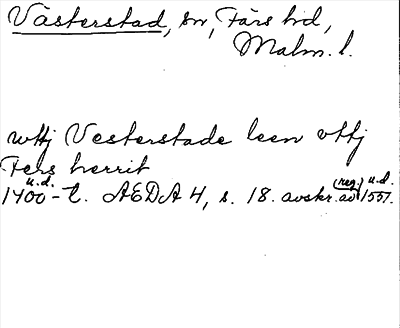 Västerstad, sn, Färs hd,
Malm. l.
wttj Vesterstade leen vttj
Fers herrit
1400-t. u.d. ÆDA 4, s. 18. avskr. av (reg.) u.d. 1551.